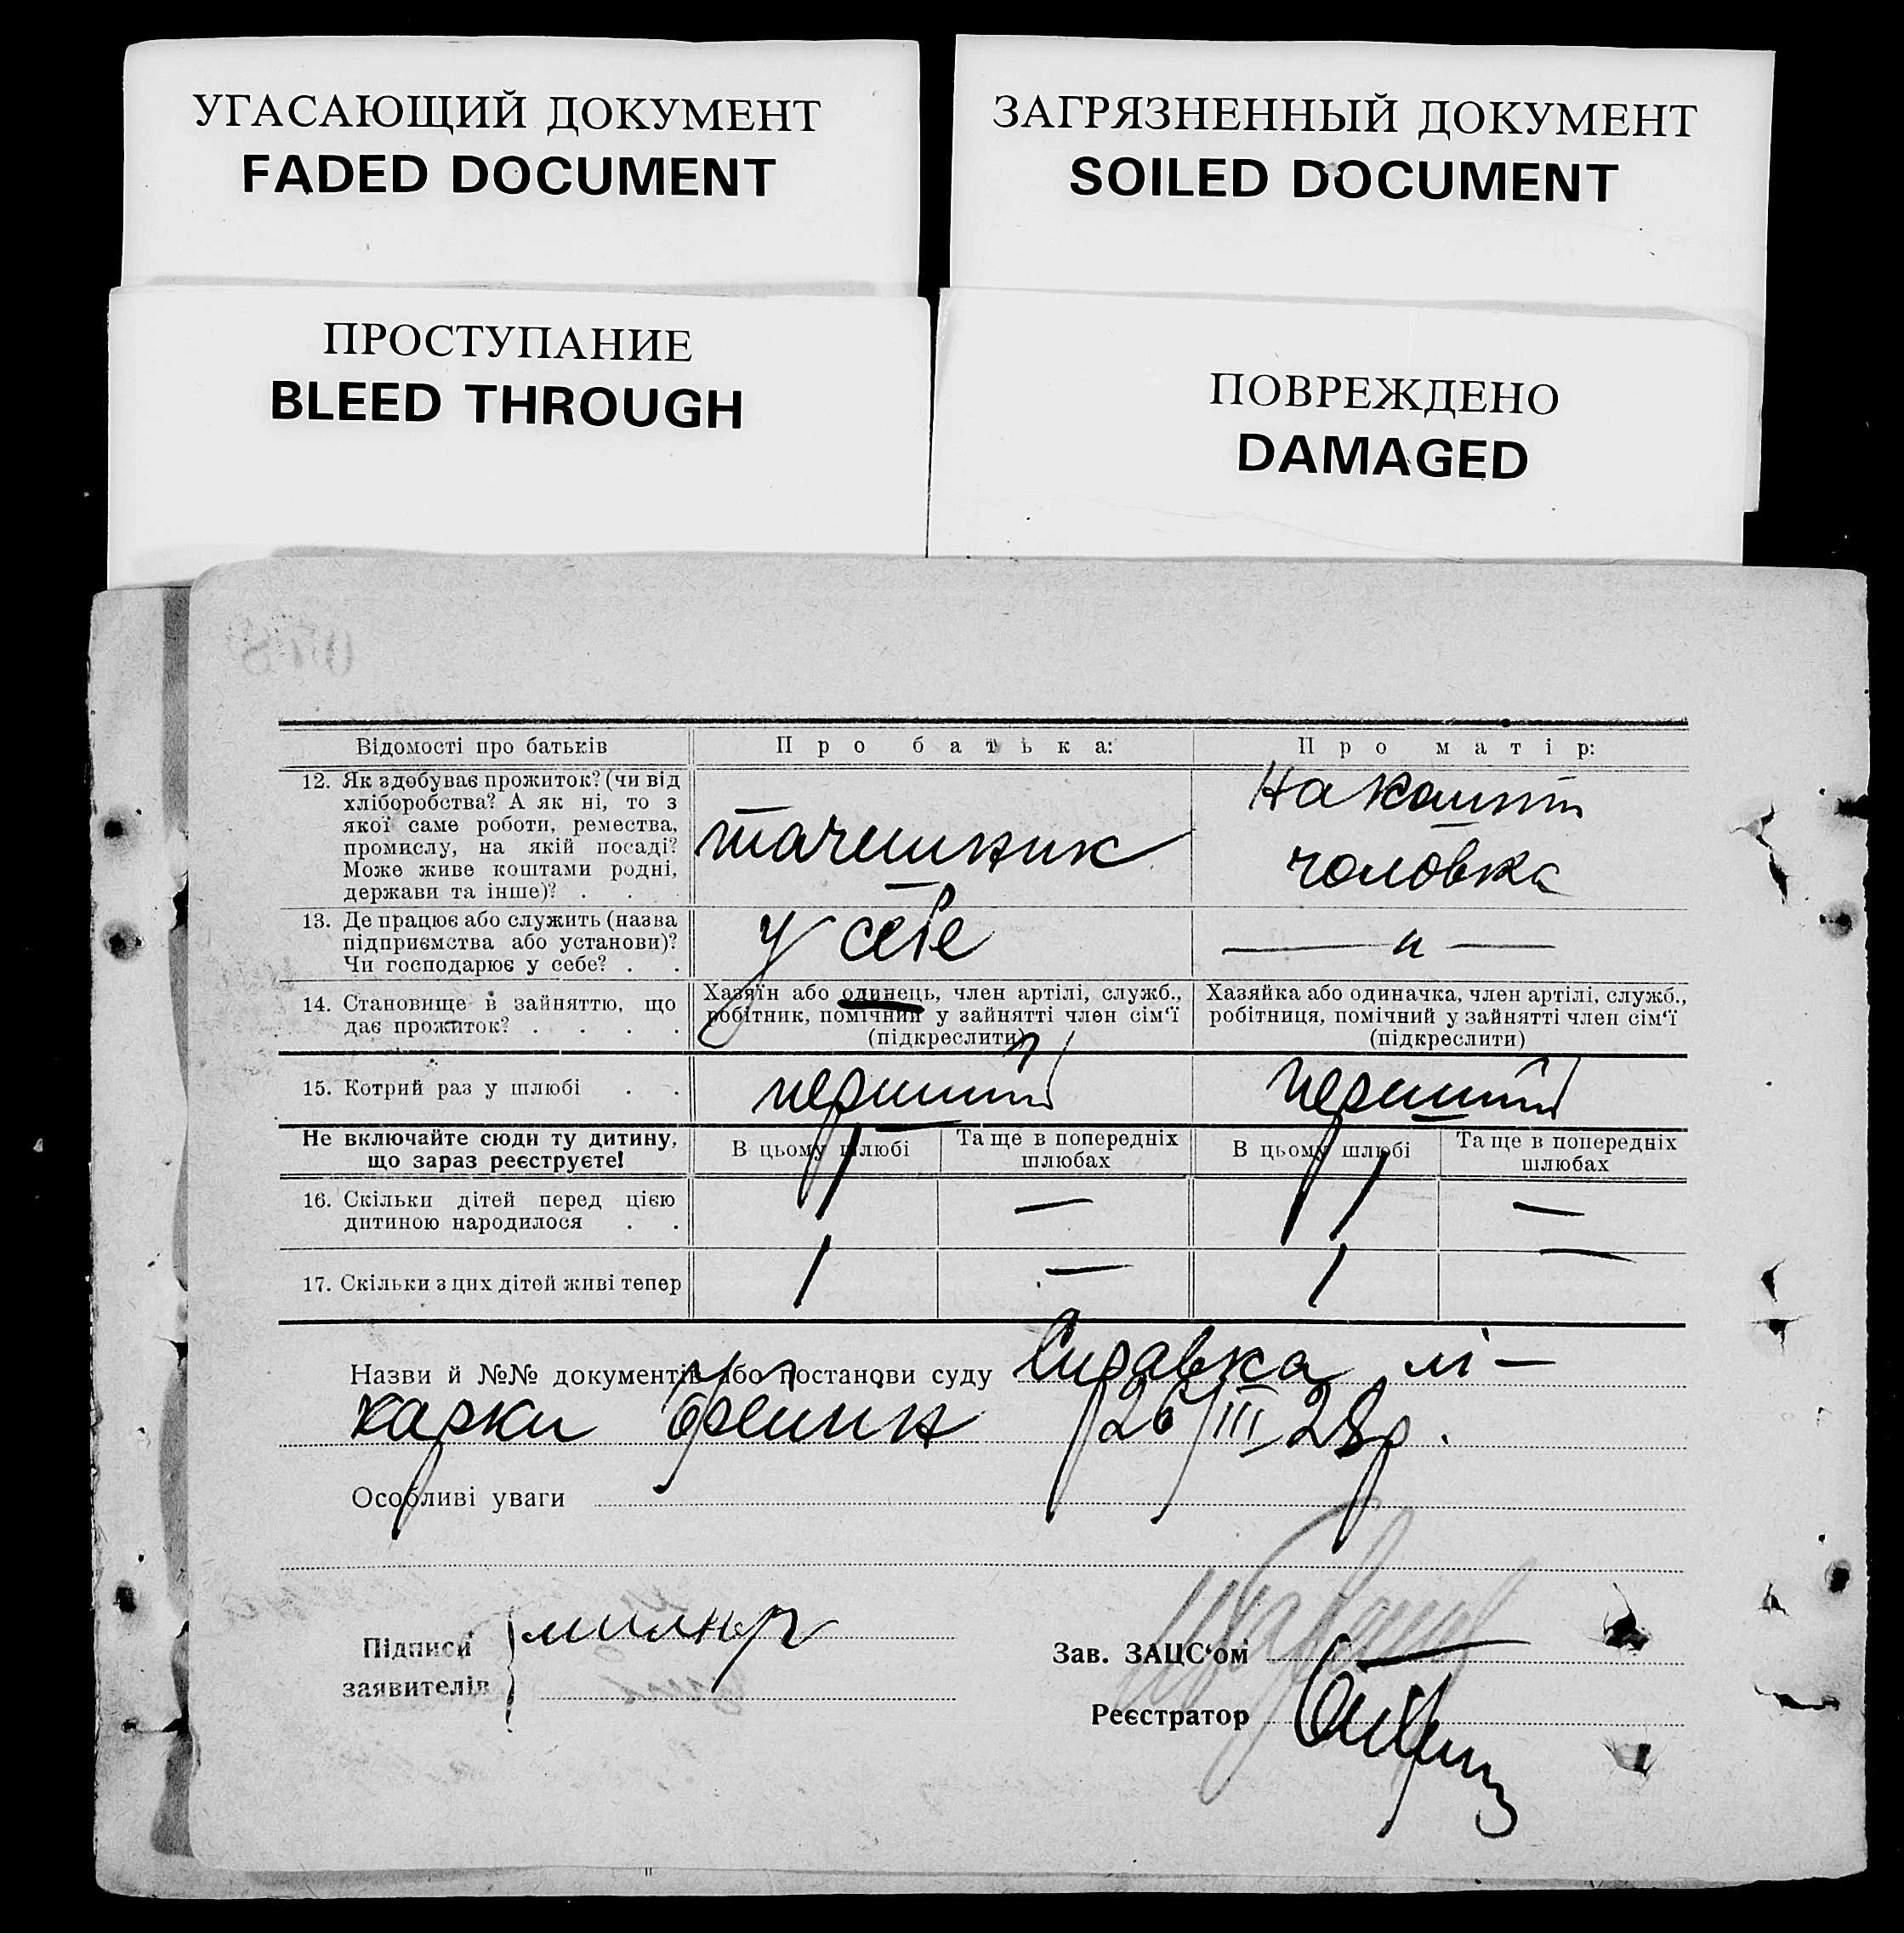 УГАСАЮЩИЙ ДОКУМЕНТ
FADED DOCUMENT
ЗАГРЯЗНЕННЫЙ ДОКУМЕНТ
SOILED DOCUMENT
ПРОСТУПАНИЕ
BLEED THROUGH
ПОВРЕЖДЕНО
DAMAGED
Відомості про батьків
Про батька:
Про матір:
12. Як здобуває прожиток? (чи від
хліборобства? А як ні, то з
якої саме роботи, ремества,
промислу, на якій посаді?
Може живе коштами родні,
держави та інше)? . . .
на кошти
чоловка
13. Де працює або служить (назва
підприємства або установи)?
Чи господарює у себе? . .
у себе
— " —
14. Становище в зайняттю, що
дає прожиток? . . . .
Хазяїн або одинець, член артілі, служб.,
робітник, помічний у зайнятті член сім'ї
(підкреслити)
Хазяйка або одиначка, член артілі, служб.,
робітниця, помічний у зайнятті член сім'ї
(підкреслити)
15. Котрий раз у шлюбі . .
перший
перший
Не включайте сюди ту дитину,
що зараз реєструєте!
В цьому шлюбі
Та ще в попередніх
шлюбах
В цьому шлюбі
Та ще в попередніх
шлюбах
16. Скільки дітей перед цією
дитиною народилося . .
1
—
1
—
17. Скільки з цих дітей живі тепер
1
—
1
—
Назви й №№ документів або постанови суду Справка лі-
карки 26/III 28р.
Особливі уваги
Підписи
заявителів
Зав. ЗАЦС'ом
Реєстратор